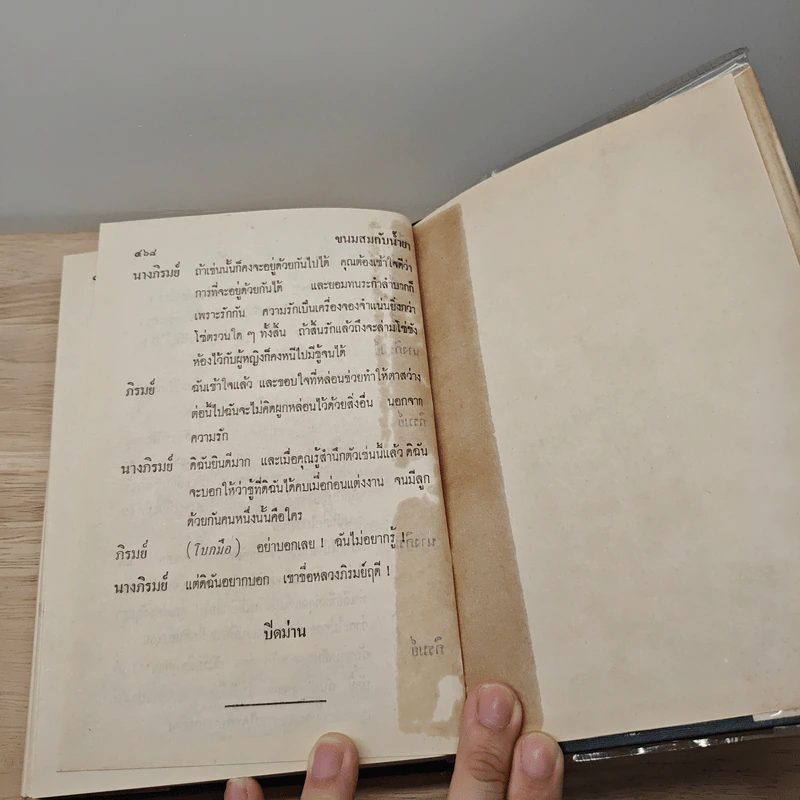 ๕๖๘
ขนมสมกับน้ำยา
นางภิรมย์ ถ้าเช่นนั้นก็คงจะอยู่ด้วยกันไปได้ คุณต้องเข้าใจดีว่า
การที่จะอยู่ด้วยกันได้ และยอมทนระกำลำบากก็
เพราะรักกัน ความรักเป็นเครื่องจองจำแน่นยิ่งกว่า
โซ่ตรวนใด ๆ ทั้งสิ้น ถ้าสิ้นรักแล้วถึงจะล่ามโซ่ขัง
ห้องไว้กับผู้หญิงก็คงหนีไปมีชู้จนได้
ภิรมย์ ฉันเข้าใจแล้ว และขอบใจที่หล่อนช่วยทำให้ตาสว่าง
ต่อนี้ไปฉันจะไม่คิดผูกหล่อนไว้ด้วยสิ่งอื่น นอกจาก
ความรัก
นางภิรมย์ ดิฉันยินดีมาก และเมื่อคุณรู้สำนึกตัวเช่นนี้แล้ว ดิฉัน
จะบอกให้ว่าชู้ที่ดิฉันได้คบเมื่อก่อนแต่งงาน จนมีลูก
ด้วยกันคนหนึ่งนั้นคือใคร
ภิรมย์ (โบกมือ) อย่าบอกเลย ! ฉันไม่อยากรู้ !
นางภิรมย์ แต่ดิฉันอยากบอก เขาชื่อหลวงภิรมย์ฤดี !
ปิดม่าน